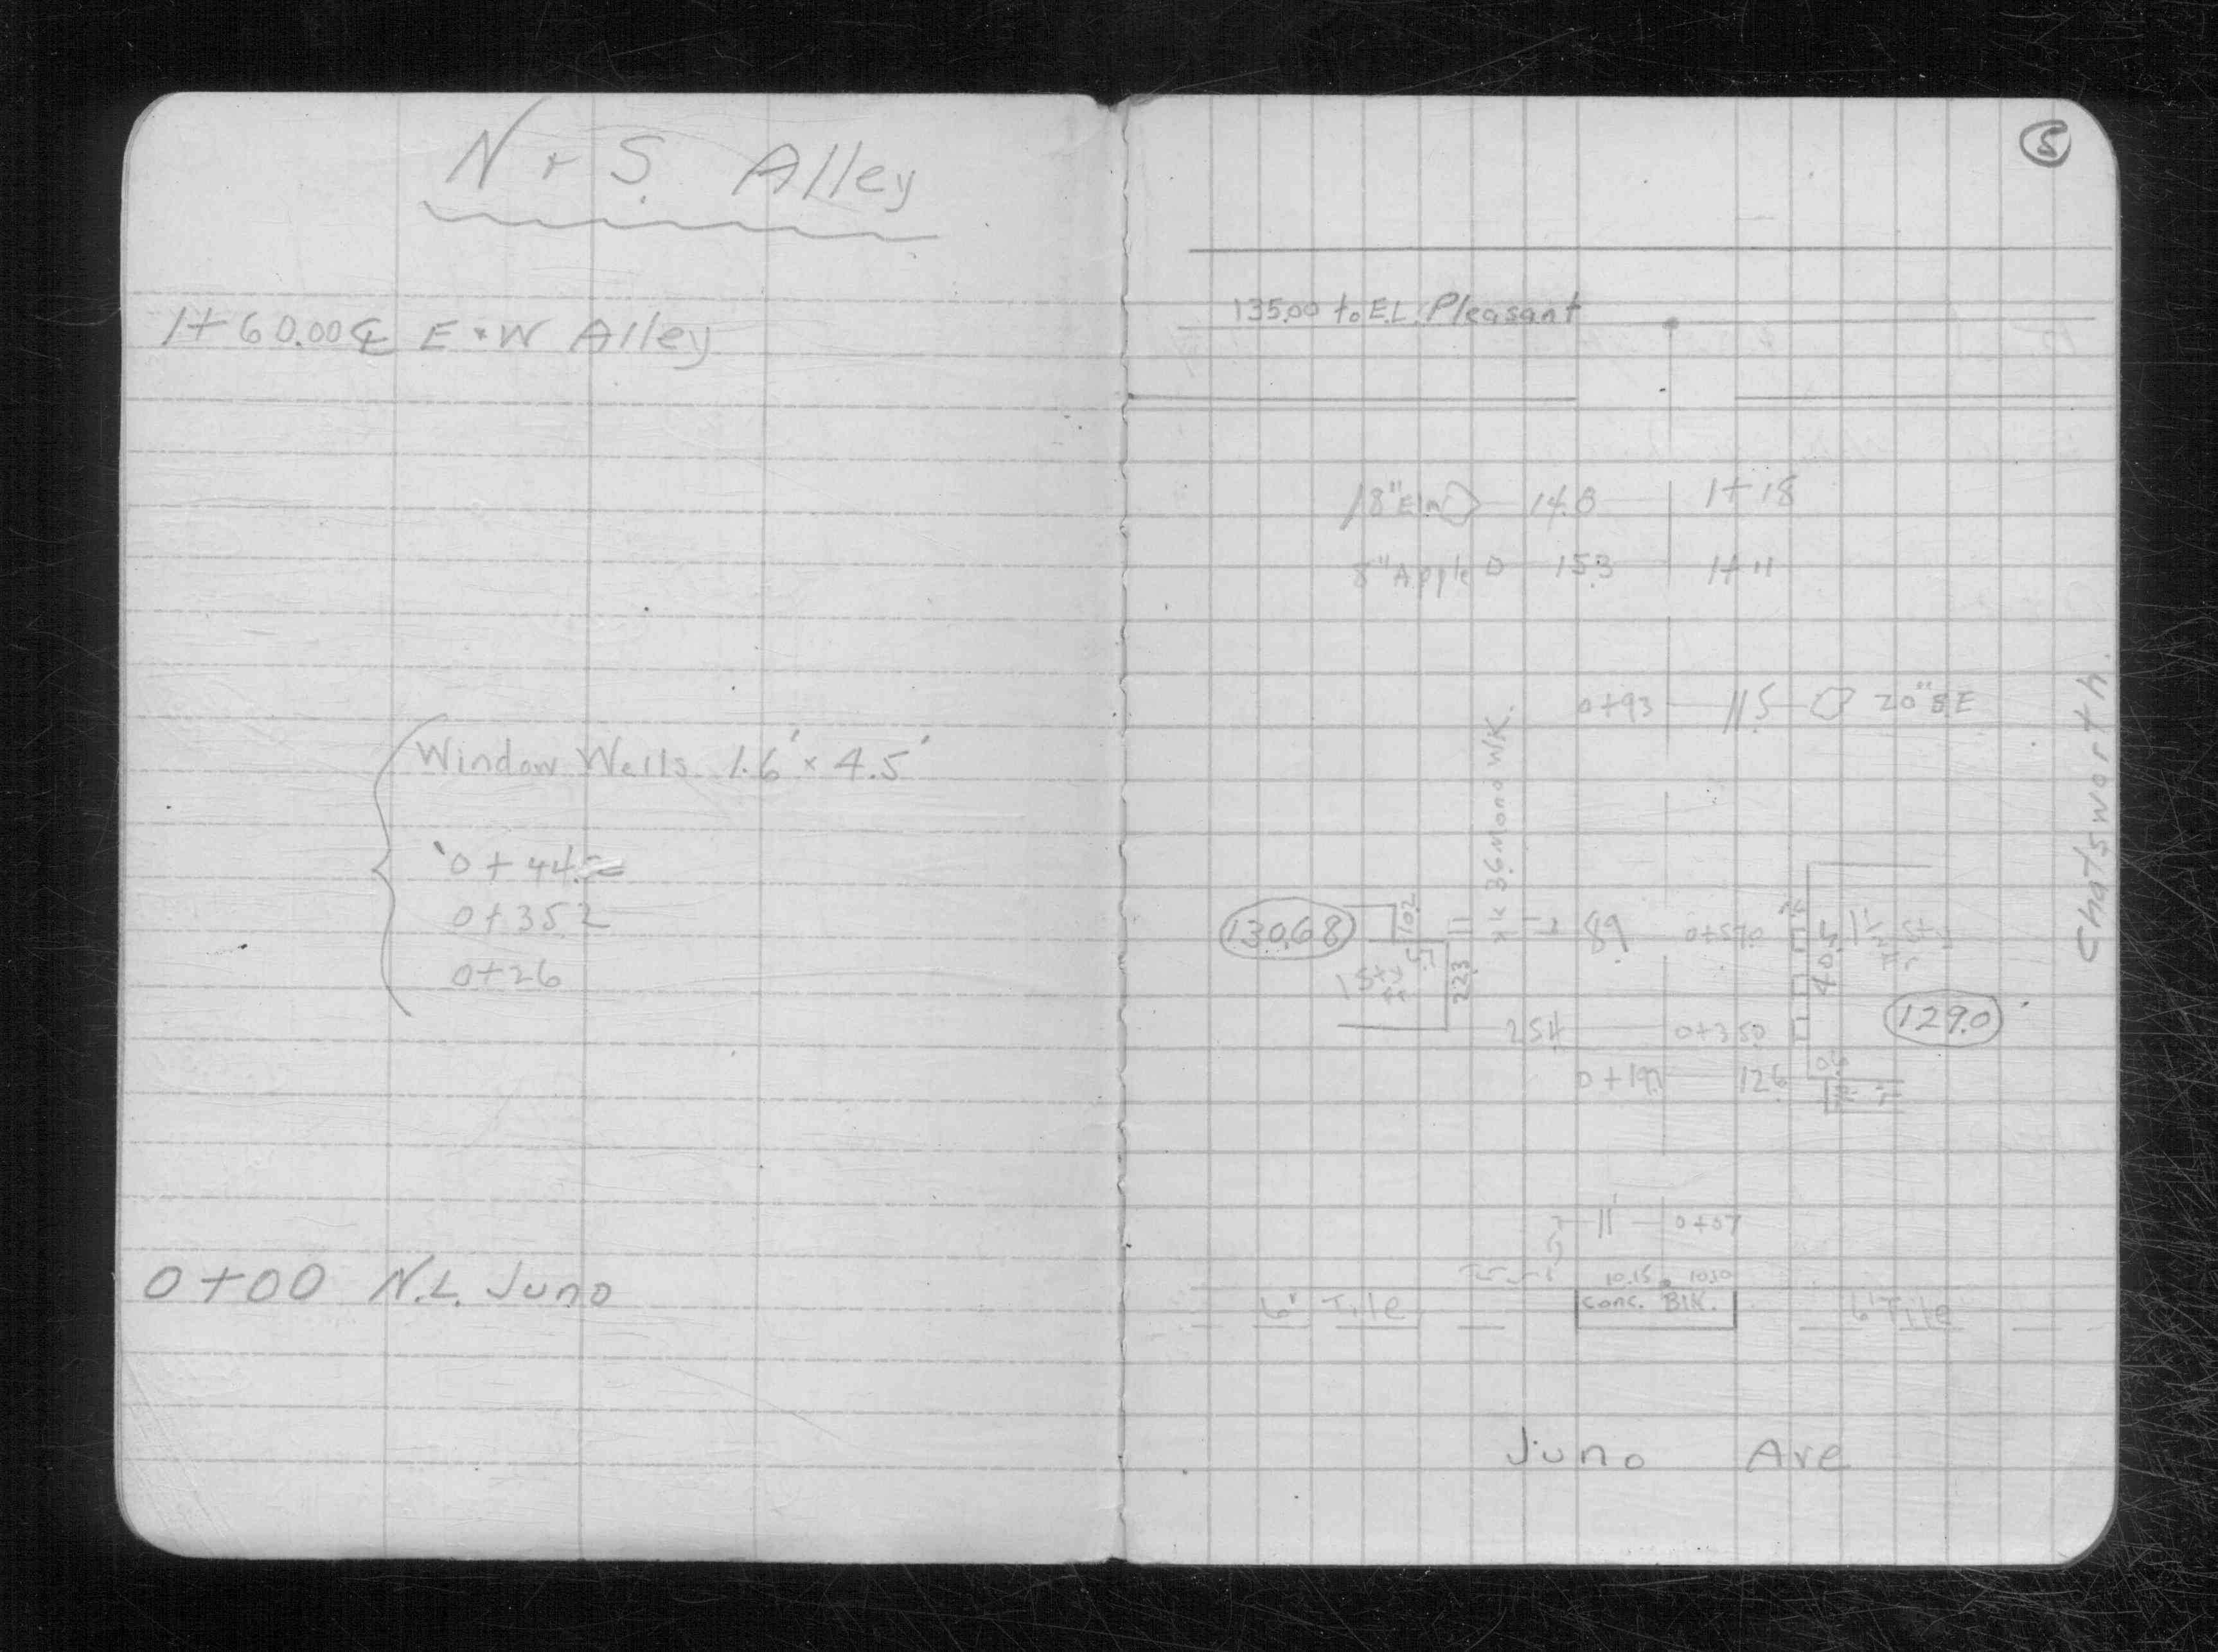 N + S. Alley
1+60.00 ℄ E + W Alley
Window Wells 1.6' x 4.5'
0+44.2
0+35.2
0+26
0+00 N.L. Juno
5
135.00 to E.L. Pleasant
18" Elm 14.8 1+18
8" Apple 15.3 1+11
0+93 11.5 20" B.E
Chatsworth
3.6 Mono WK.
130.68 10.2 8.9 0+57.0 40.5 1½ Sty
1 Sty 22.3
129.0
25.4 0+35.0
0+19.1 12.6
11 0+07
10.15 10.10
6' Tile Conc. Blk. 6' Tile
Juno Ave